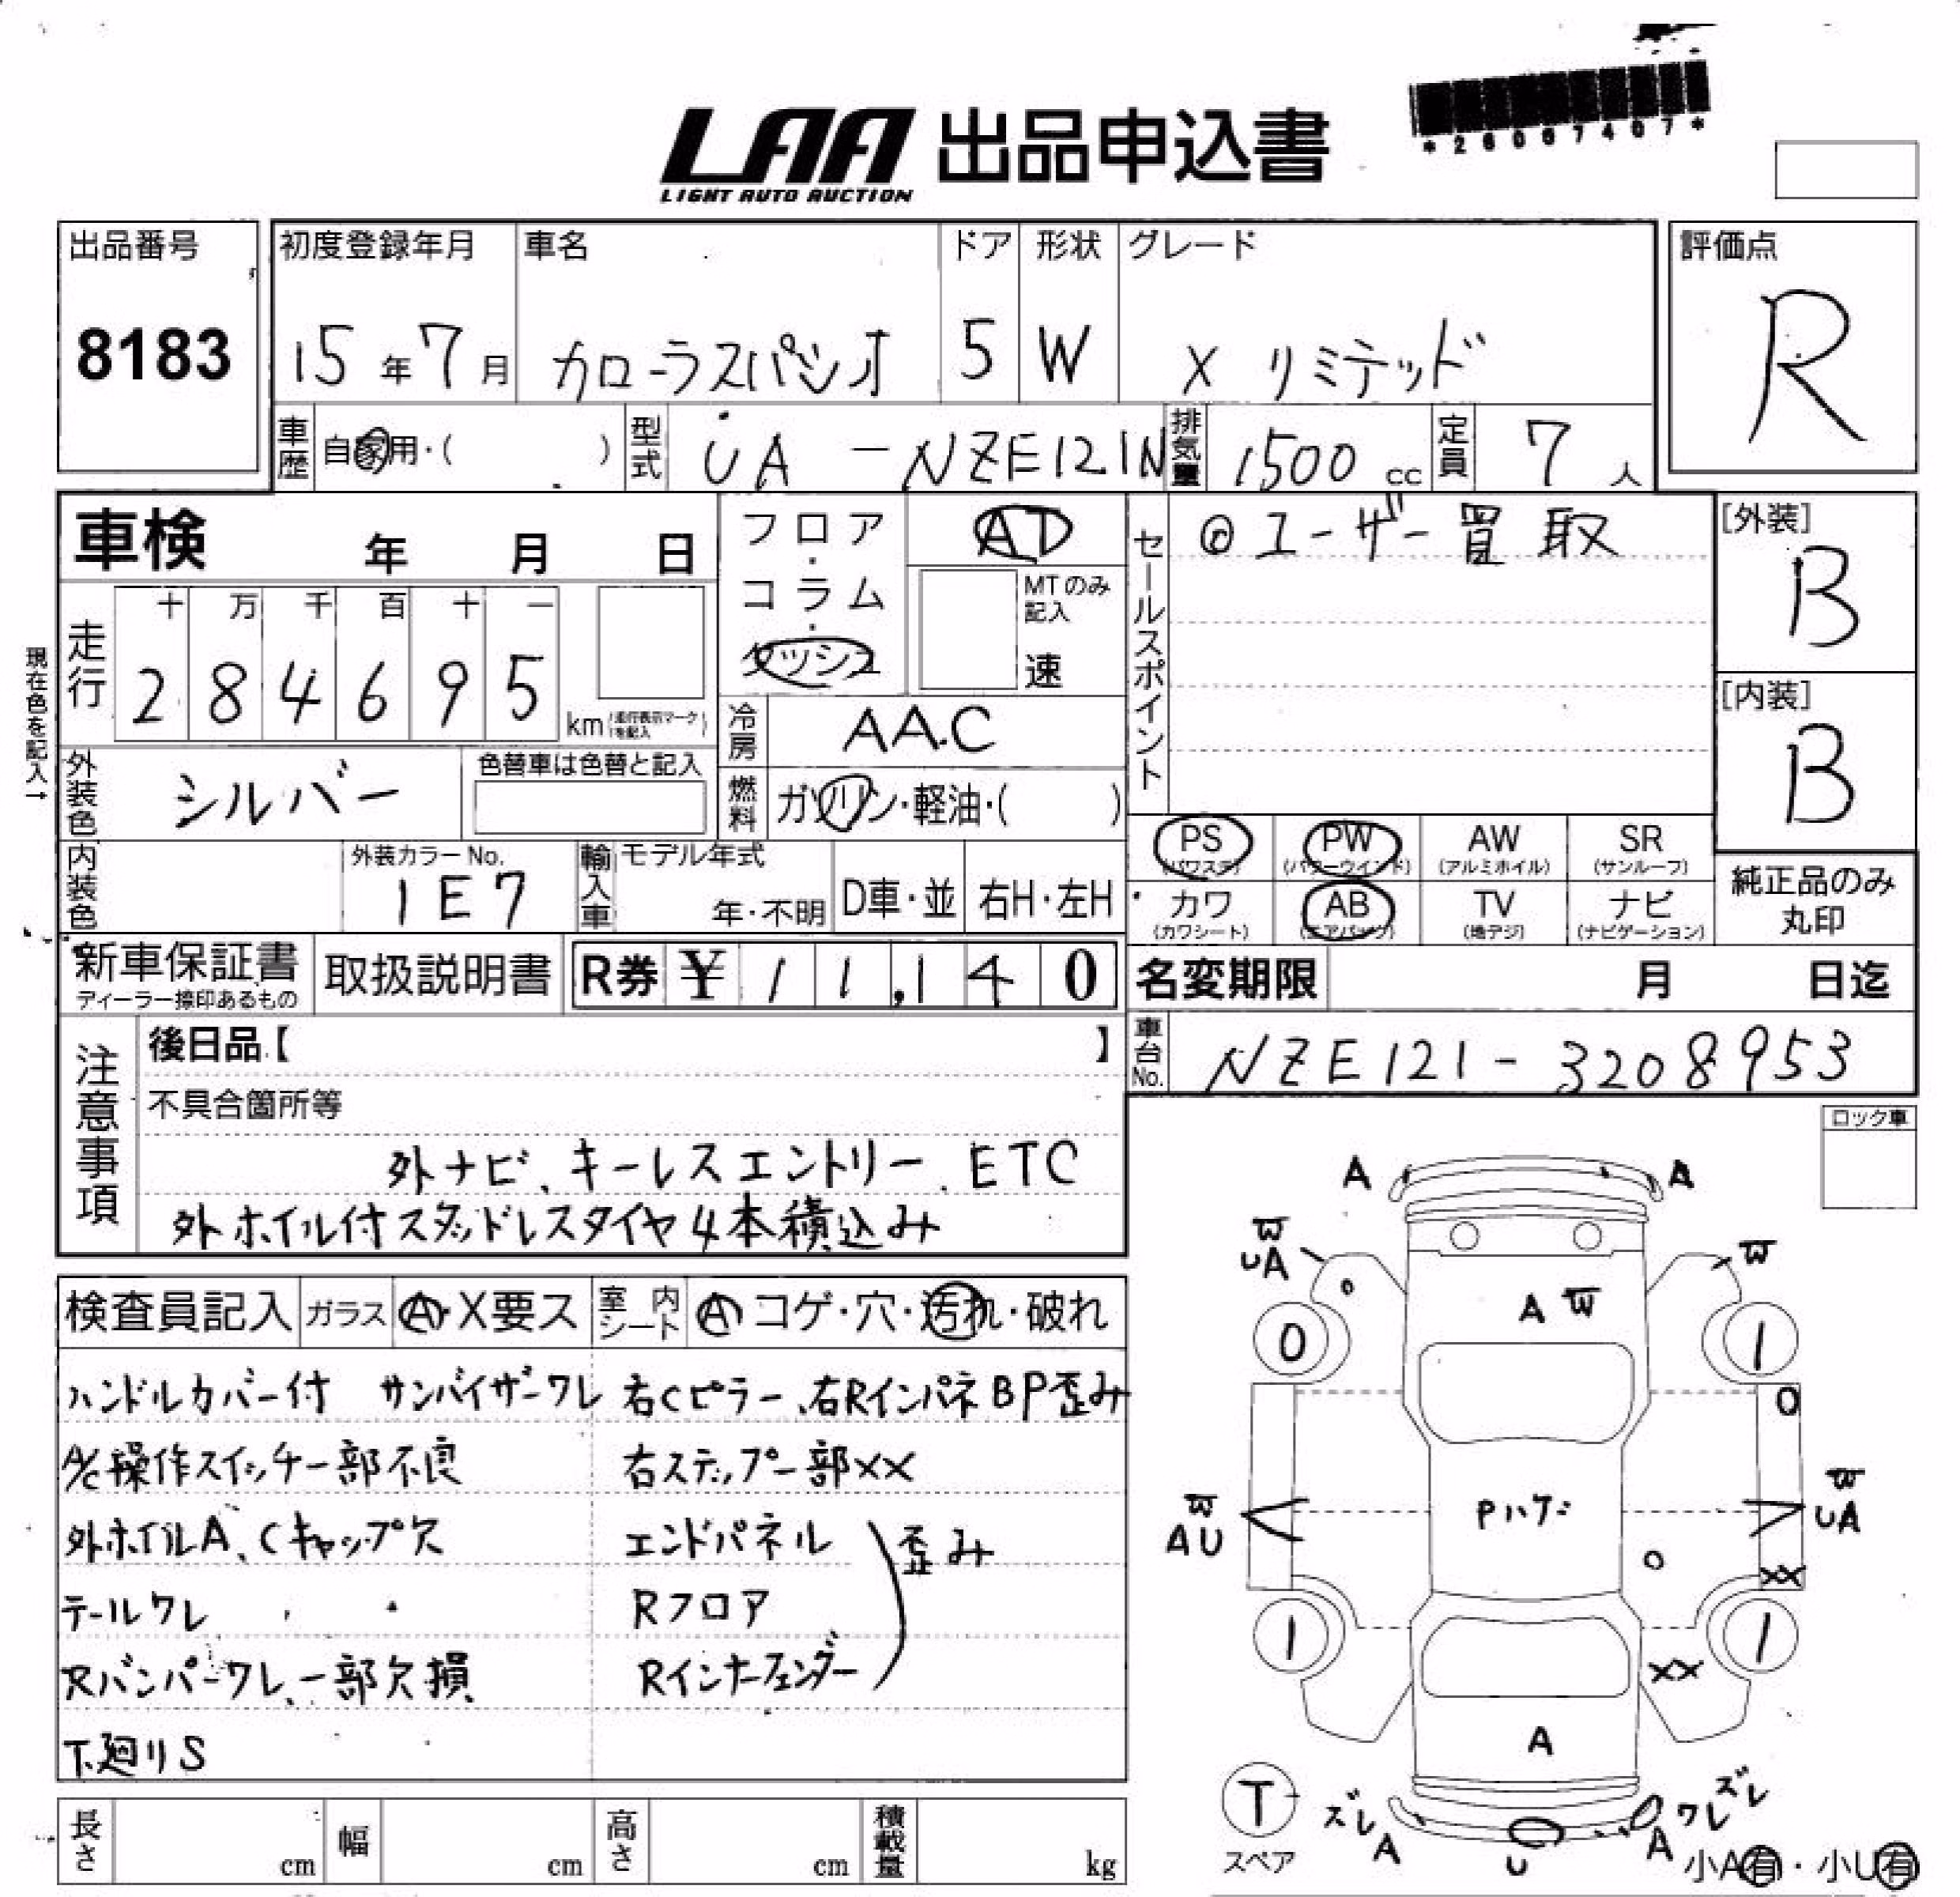 *26067407*
LAA 出品申込書
LIGHT AUTO AUCTION
出品番号
8183
初度登録年月
15年7月
車名
カローラスパシオ
ドア
5
形状
W
グレード
X リミテッド
評価点
R
車歴
自家用・( )
型式
UA - NZE121N
排気量
1500 cc
定員
7 人
車検 年 月 日
フロア・コラム・ダッシュ
AT
MTのみ記入
速
セールスポイント
◎ユーザー買取
[外装]
B
[内装]
B
現在色を記入→
走行
十 万 千 百 十 一
2 8 4 6 9 5 km
(走行表示マークを記入)
冷房
AAC
外装色
シルバー
色替車は色替と記入
燃料
ガソリン・軽油・( )
内装色
外装カラーNo.
1E7
輸入車
モデル年式
年・不明
D車・並
右H・左H
PS
(パワステ)
PW
(パワーウインド)
AW
(アルミホイル)
SR
(サンルーフ)
カワ
(カワシート)
AB
(エアバッグ)
TV
(地デジ)
ナビ
(ナビゲーション)
純正品のみ
丸印
新車保証書
ディーラー捺印あるもの
取扱説明書
R券 ¥11,140
名変期限 月 日迄
車台No.
NZE121-3208953
注意事項
後日品【 】
不具合箇所等
外ナビ、キーレスエントリー、ETC
外ホイル付スタッドレスタイヤ4本積込み
ロック車
検査員記入
ガラス
A・X要ス
室内シート
A コゲ・穴・汚れ・破れ
ハンドルカバー付 サンバイザーワレ
A/C操作スイッチ一部不良
外ホイルA、Cキャップ欠
テールワレ
Rバンパーワレ、一部欠損
下廻りS
右Cピラー、右RインパネBP歪み
右ステップ一部XX
エンドパネル
Rフロア
Rインナーフェンダー
歪み
A A
W
UA
W
A W
0 1
0
W
AU
Pハゲ
W
UA
0
XX
1 1
XX
A
T
スペア
ズレ
A
U
A
ワレ
ズレ
小A有・小U有
長さ cm
幅 cm
高さ cm
積載量 kg